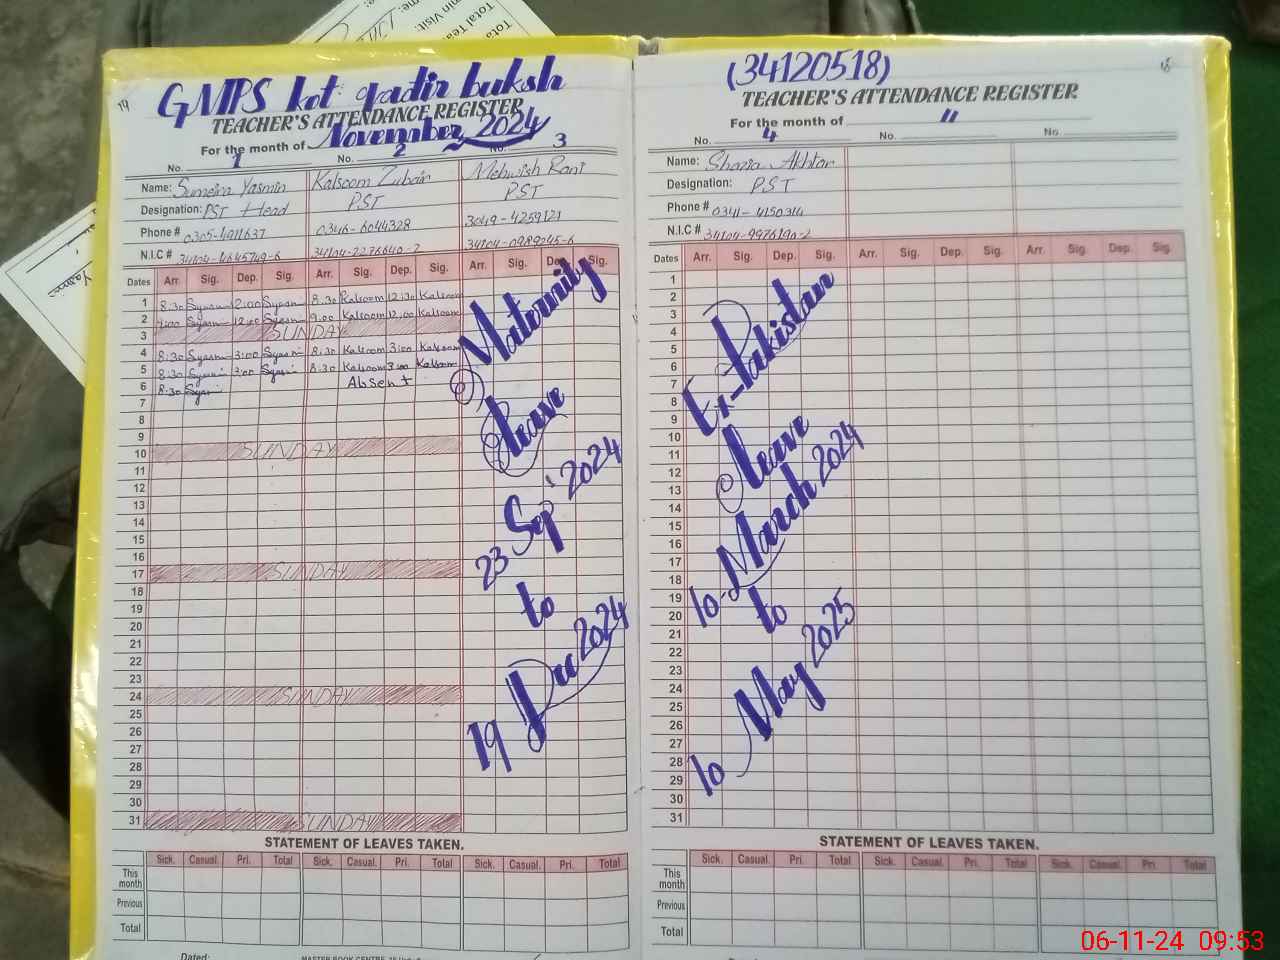 19
GMPS kot qadir buksh
TEACHER'S ATTENDANCE REGISTER
For the month of November 2024
No. 1 No. 2 No. 3
Name: Sumeira Yasmin Kalsoom Zubair Mehwish Rani
Designation: PST Head PST PST
Phone # 0305-4911637 0346-6044328 3049-4259121
N.I.C # 34104-4645749-6 34104-2276640-2 34104-0989245-6
Dates Arr. Sig. Dep. Sig. Arr. Sig. Dep. Sig. Arr. Sig. Dep. Sig.
1 8:30 Syasmin 12:00 Syasmin 8:30 Kalsoom 12:30 Kalsoom
2 9:00 Syasmin 12:00 Syasmin 9:00 Kalsoom 12:00 Kalsoom
3 SUNDAY
4 8:30 Syasmin 3:00 Syasmin 8:30 Kalsoom 3:00 Kalsoom
5 8:30 Syasmin 3:00 Syasmin 8:30 Kalsoom 3:00 Kalsoom
6 8:30 Syasmin Absent
7
8
9
10 SUNDAY
11
12
13
14
15
16
17 SUNDAY
18
19
20
21
22
23
24 SUNDAY
25
26
27
28
29
30
31 SUNDAY
Maternity
leave
23 Sep' 2024
to
19 Dec 2024
STATEMENT OF LEAVES TAKEN.
Sick. Casual. Pri. Total Sick. Casual. Pri. Total Sick. Casual. Pri. Total
This month
Previous
Total
Dated:
18
(34120518)
TEACHER'S ATTENDANCE REGISTER
For the month of "
No. 4 No. No.
Name: Shazia Akhtar
Designation: PST
Phone # 0341-4150314
N.I.C # 34104-9976190-2
Dates Arr. Sig. Dep. Sig. Arr. Sig. Dep. Sig. Arr. Sig. Dep. Sig.
1
2
3
4
5
6
7
8
9
10
11
12
13
14
15
16
17
18
19
20
21
22
23
24
25
26
27
28
29
30
31
Ex-Pakistan
leave
10-March 2024
to
10 May 2025
STATEMENT OF LEAVES TAKEN.
Sick. Casual. Pri. Total Sick. Casual. Pri. Total Sick. Casual. Pri. Total
This month
Previous
Total
06-11-24 09:53